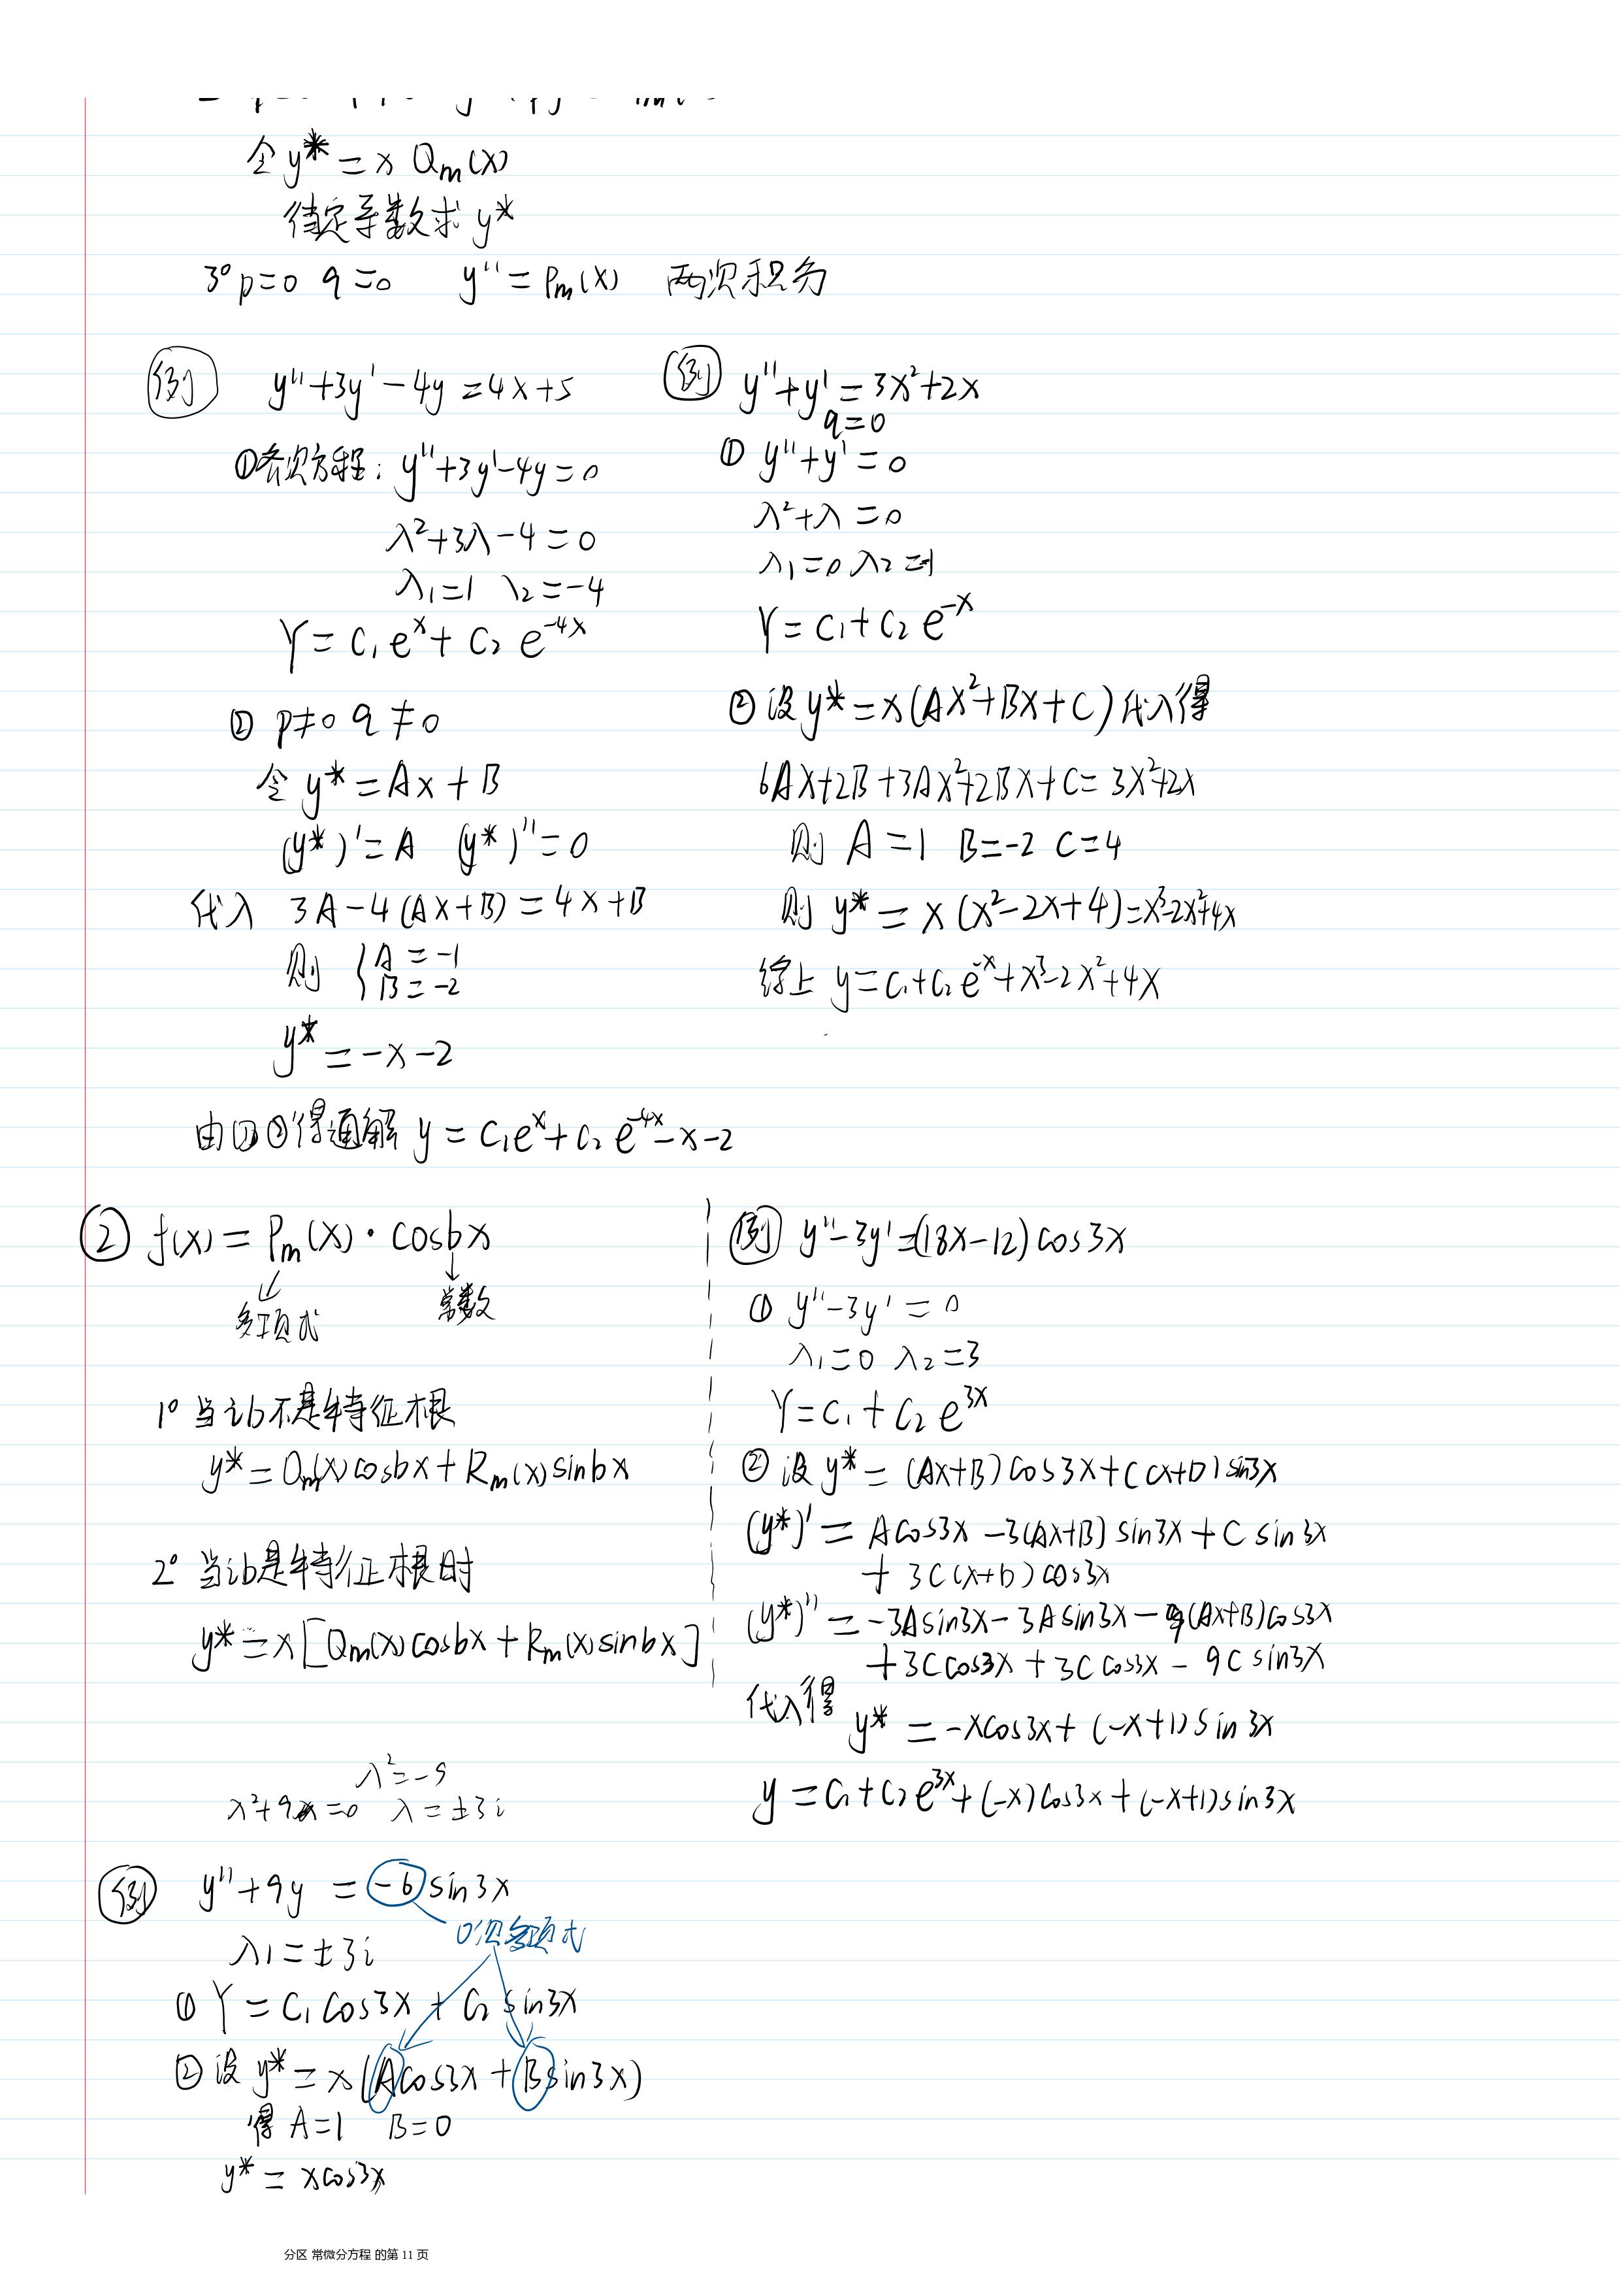 令 y* = x Qm(x)
待定系数求 y*
3° p=0 q=0 y'' = Pm(x) 两次积分
例 y''+3y'-4y=4x+5
①齐次方程: y''+3y'-4y=0
λ²+3λ-4=0
λ₁=1 λ₂=-4
Y=C₁e^x+C₂e^-4x
② p≠0 q≠0
令 y*=Ax+B
(y*)'=A (y*)''=0
代入 3A-4(Ax+B)=4x+B
则 {A=-1
B=-2
y*=-x-2
由①②得通解 y=C₁e^x+C₂e^-4x-x-2
例 y''+y'=3x²+2x
q=0
① y''+y'=0
λ²+λ=0
λ₁=0 λ₂=-1
Y=C₁+C₂e^-x
② 设 y*=x(Ax²+Bx+C) 代入得
6Ax+2B+3Ax²+2Bx+C=3x²+2x
则 A=1 B=-2 C=4
则 y*=x(x²-2x+4)=x³-2x²+4x
综上 y=C₁+C₂e^-x+x³-2x²+4x
② f(x)=Pm(x)·cosbx
多项式 常数
1° 当ib不是特征根
y*=Qm(x)cosbx+Rm(x)sinbx
2° 当ib是特征根时
y*=x[Qm(x)cosbx+Rm(x)sinbx]
例 y''-3y'=(18x-12)cos3x
① y''-3y'=0
λ₁=0 λ₂=3
Y=C₁+C₂e^3x
② 设 y*=(Ax+B)cos3x+(Cx+D)sin3x
(y*)'=Acos3x-3(Ax+B)sin3x+Csin3x
+3C(x+D)cos3x
(y*)''=-3Asin3x-3Asin3x-9(Ax+B)cos3x
+3Ccos3x+3Ccos3x-9Csin3x
代入得
y*=-xcos3x+(-x+1)sin3x
y=C₁+C₂e^3x+(-x)cos3x+(-x+1)sin3x
λ²=-9
λ²+9=0 λ=±3i
例 y''+9y=-6sin3x
0次多项式
λ₁=±3i
① Y=C₁cos3x+C₂sin3x
② 设 y*=x(Acos3x+Bsin3x)
得 A=1 B=0
y*=xcos3x
分区 常微分方程 的第 11 页